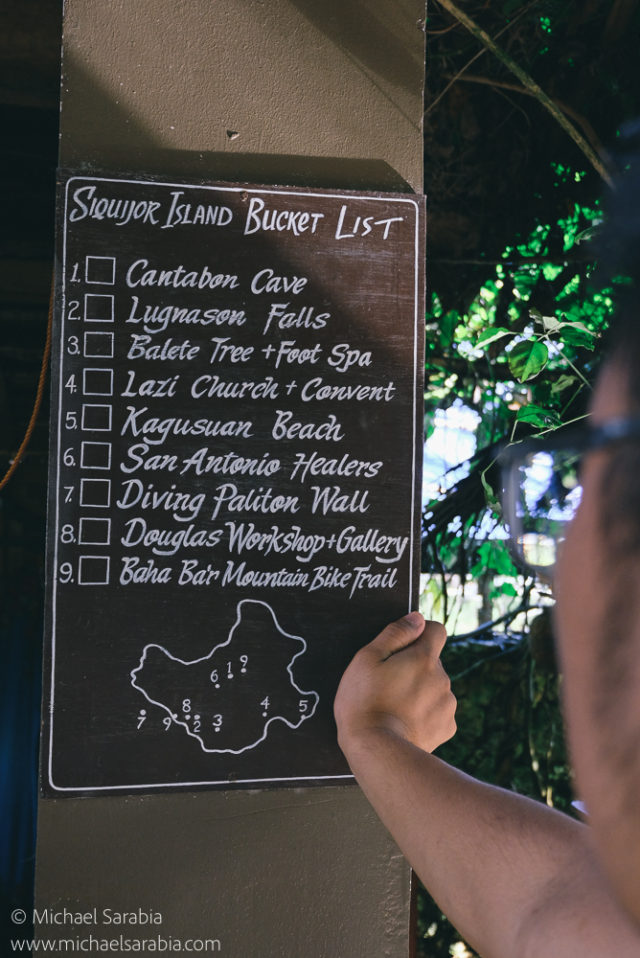 Siquijor Island Bucket List
1. Cantabon Cave
2. Lugnason Falls
3. Balete Tree + Foot Spa
4. Lazi Church + Convent
5. Kagusuan Beach
6. San Antonio Healers
7. Diving Paliton Wall
8. Douglas Workshop + Gallery
9. Baha Ba'r Mountain Bike Trail
1 9
6
8 4 5
7 9 2 3
© Michael Sarabia
www.michaelsarabia.com